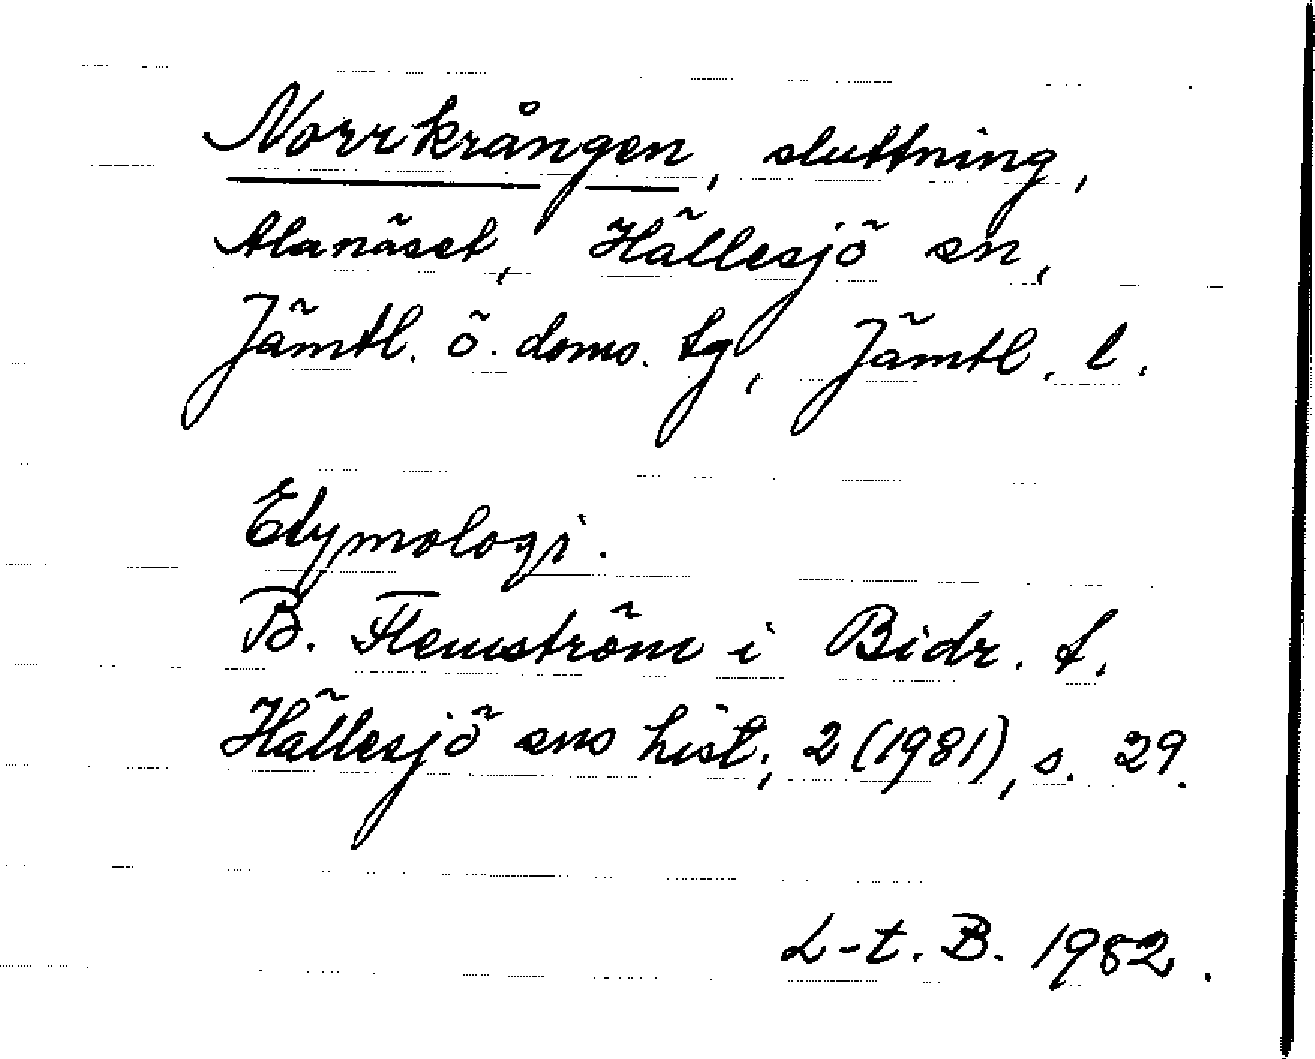 Norrkrången, sluttning,
Alanäset, Hällesjö sn,
Jämtl. ö. doms. tg, Jämtl. l.
Etymologi.
B. Flemström i Bidr. t.
Hällesjö sns hist., 2 (1981), s. 29.
L-t. B. 1982.